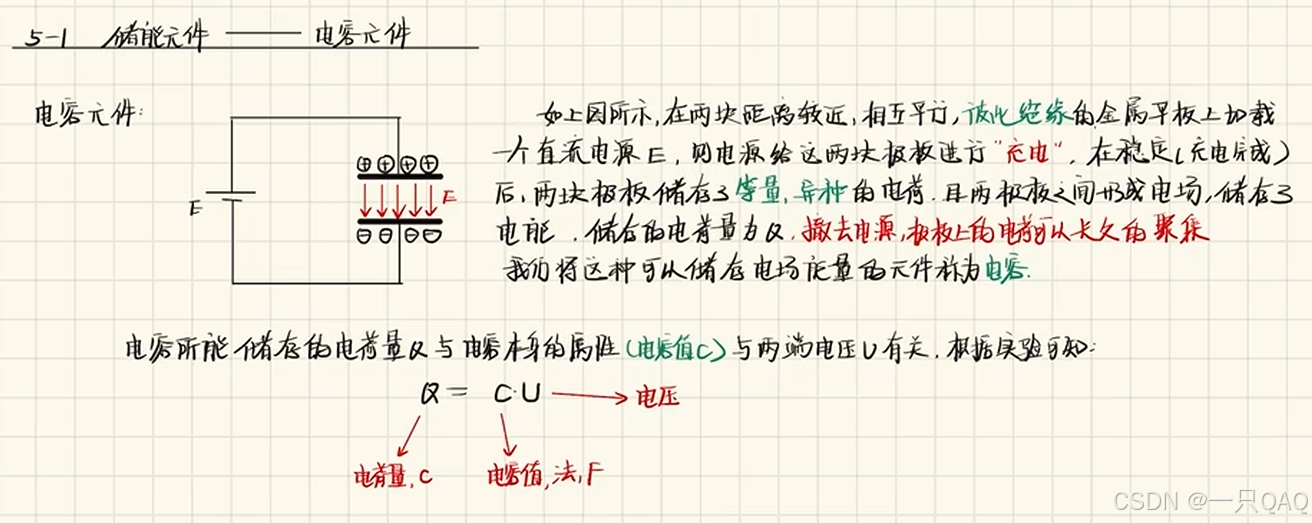 5-1 储能元件 —— 电容元件
电容元件:
如上图所示,在两块距离较近,相互平行,彼此绝缘的金属平板上加载
一个直流电源E,则电源给这两块极板进行"充电".在稳定(充电完成)
后,两块极板储存了等量,异种的电荷.且两极板之间形成电场,储存了
电能.储存的电荷量为Q.撤去电源,极板上的电荷可以长久的聚集
我们将这种可以储存电场能量的元件称为电容.
E
⊕⊕⊕⊕
E
⊖⊖⊖⊖
电容所能储存的电荷量Q与电容本身的属性(电容值C)与两端电压U有关.根据实验可知:
Q = C·U → 电压
电荷量,C 电容值,法,F
CSDN @一只QAQ